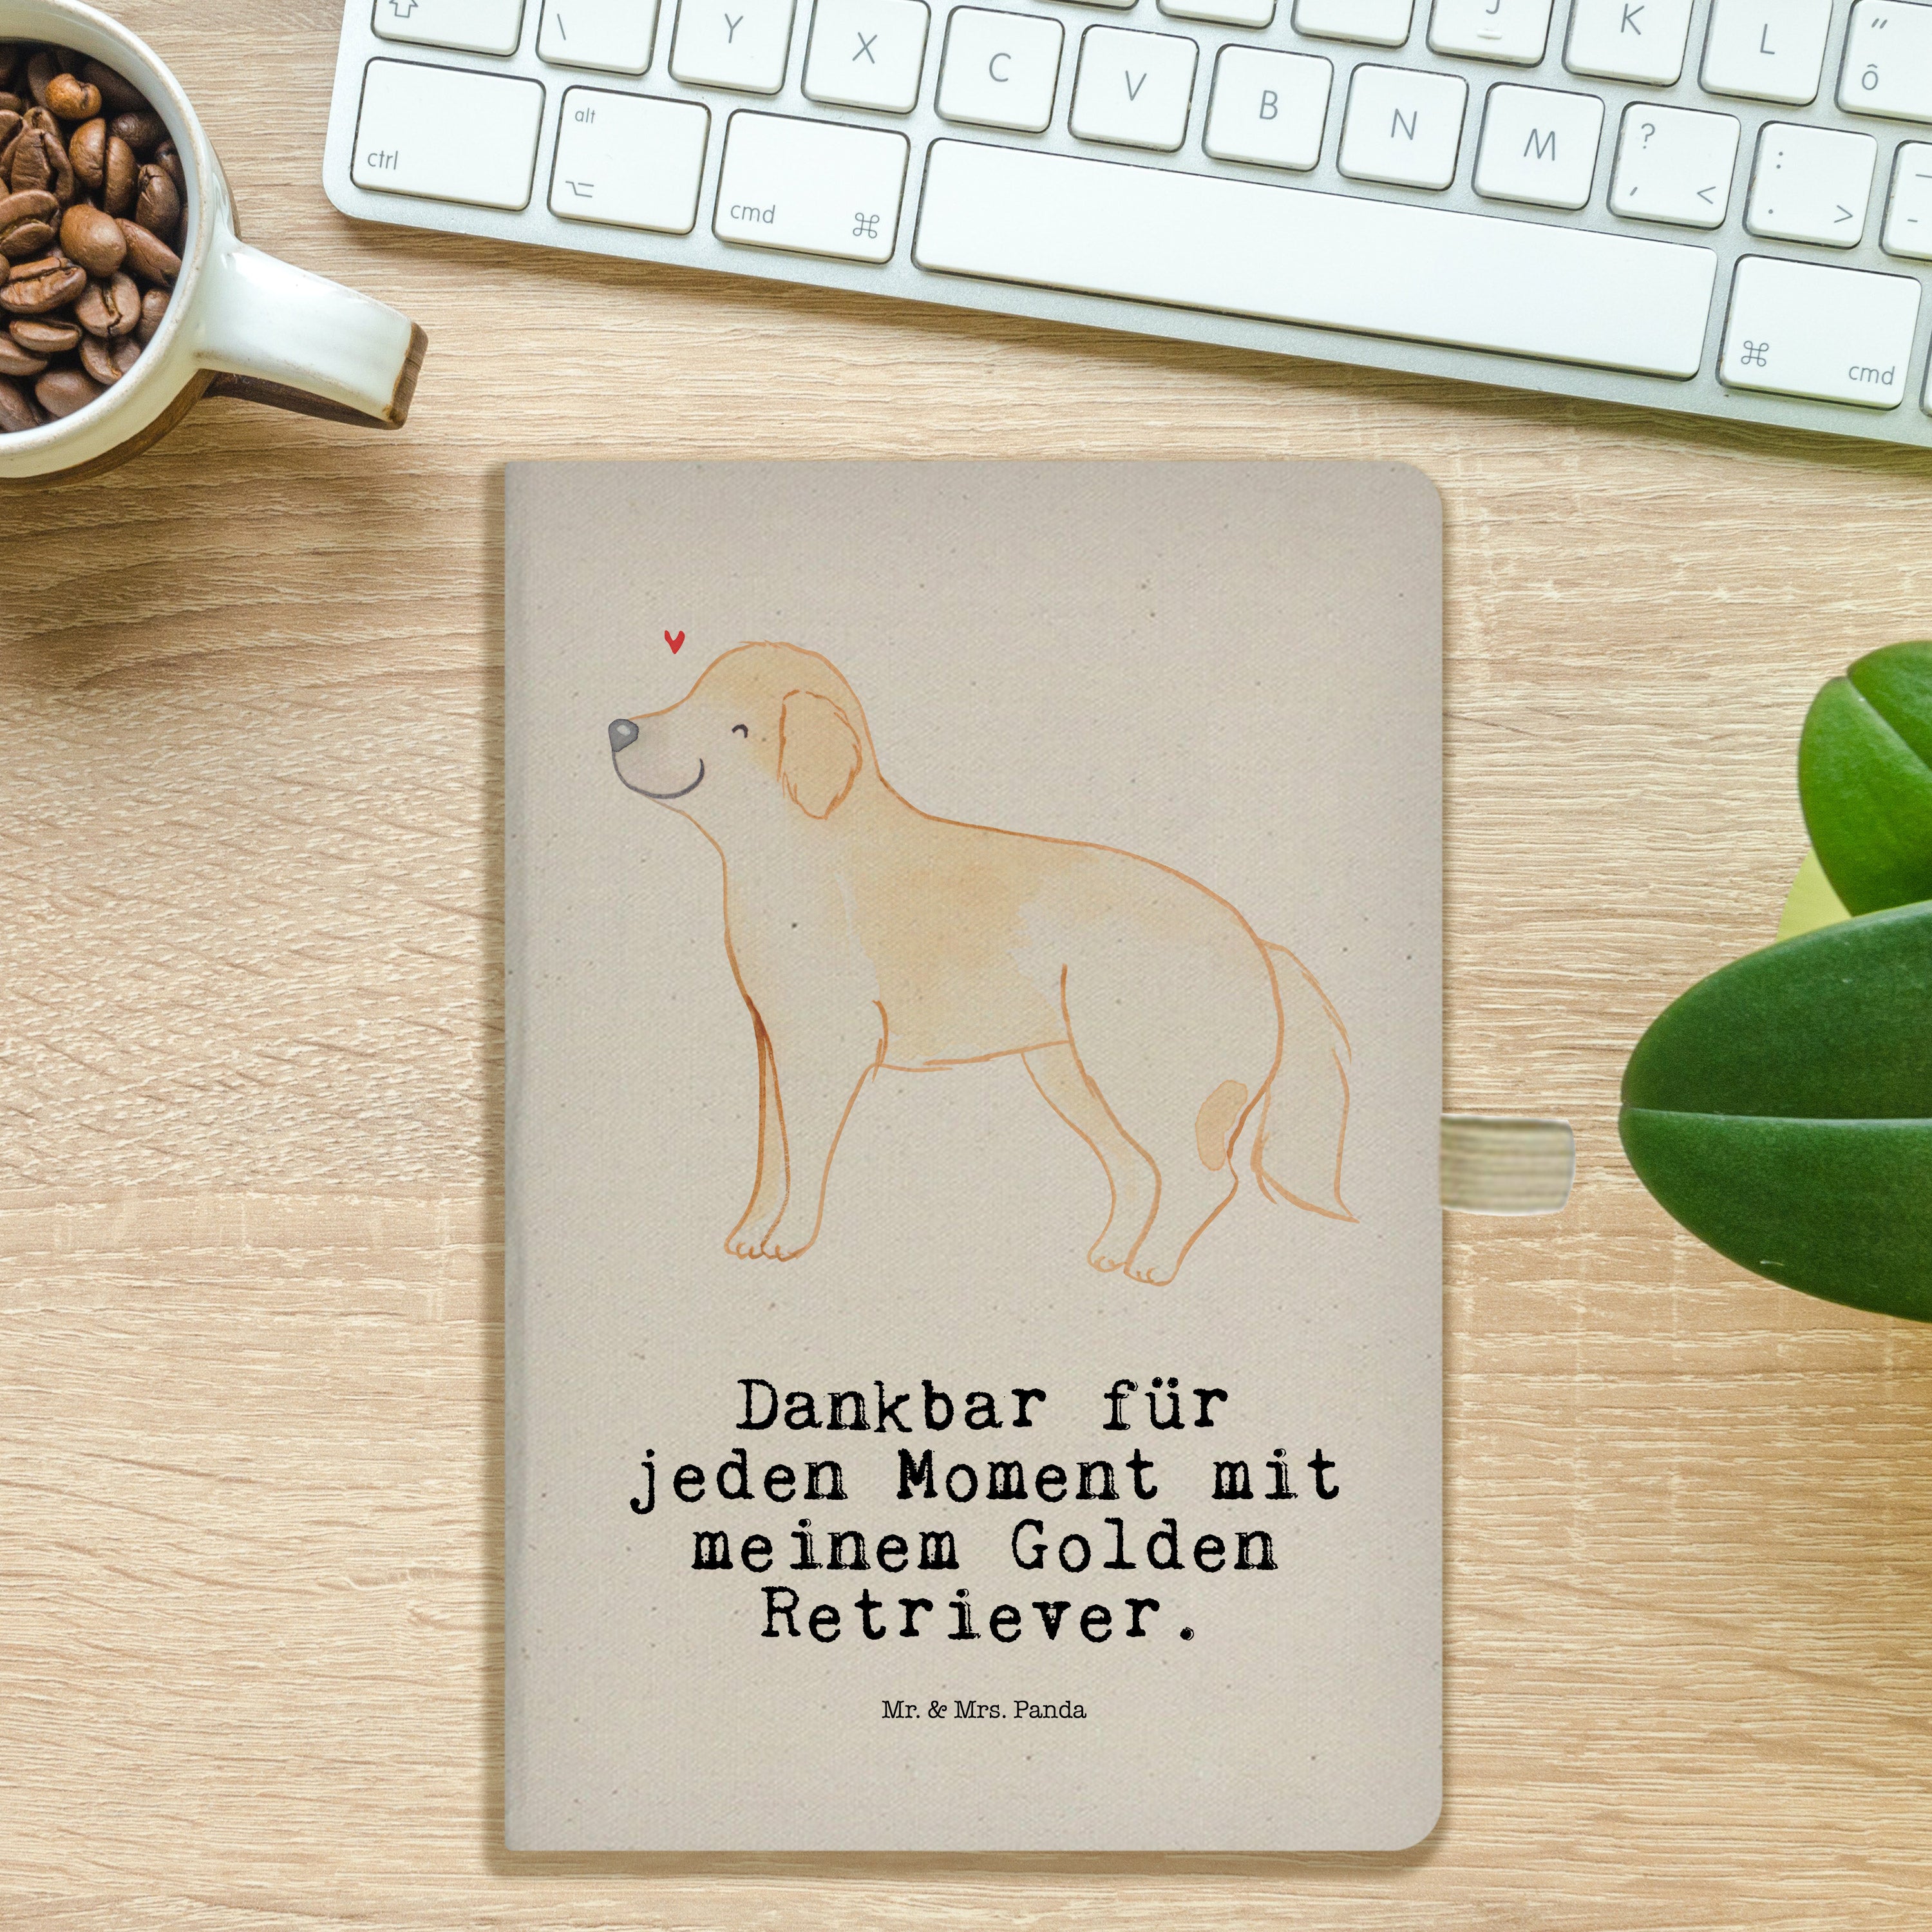 \ Y X C V B N M J K L " ô
ctrl alt cmd ⌘ ? , < : . >
⌘ cmd
Dankbar für
jeden Moment mit
meinem Golden
Retriever.
Mr. & Mrs. Panda